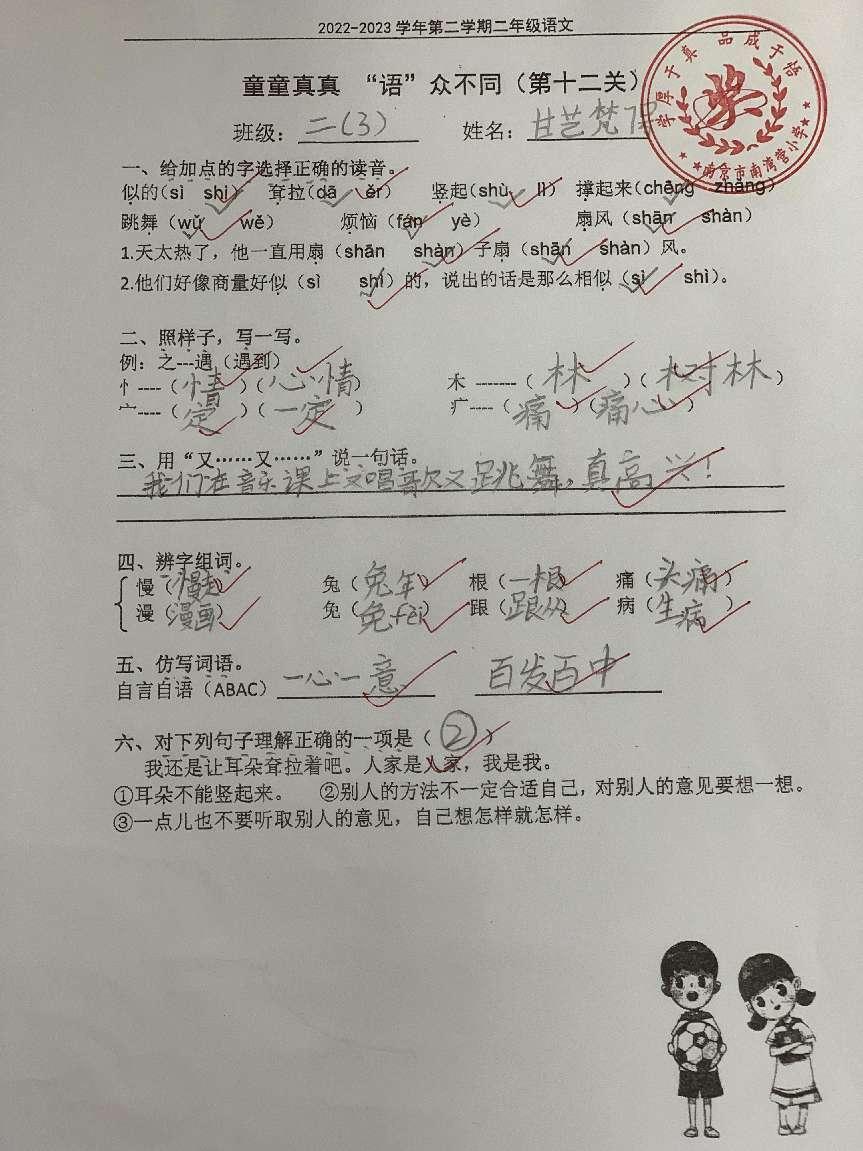 2022-2023学年第二学期二年级语文
童童真真 “语”众不同（第十二关）
班级：二(3) 姓名：甘艺梵
学厚于真 品成于悟
学
南京市南湾营小学
一、给加点的字选择正确的读音。
似的（sì shì） 耷拉（dā ěr） 竖起（shù lì） 撑起来（chēng zhǎng）
跳舞（wǔ wě） 烦恼（fán yè） 扇风（shān shàn）
1.天太热了，他一直用扇（shān shàn）子扇（shān shàn）风。
2.他们好像商量好似（sì shì）的，说出的话是那么相似（sì shì）。
二、照样子，写一写。
例：之---遇（遇到）
忄----（情）（心情） 木 -------（林）（树林）
宀----（定）（一定） 疒----（痛）（痛心）
三、用“又……又……”说一句话。
我们在音乐课上又唱歌又跳舞，真高兴！
四、辨字组词。
慢（慢走） 兔（兔年） 根（一根） 痛（头痛）
漫（漫画） 免（免fèi） 跟（跟从） 病（生病）
五、仿写词语。
自言自语（ABAC） 一心一意 百发百中
六、对下列句子理解正确的一项是（②）
我还是让耳朵耷拉着吧。人家是人家，我是我。
①耳朵不能竖起来。 ②别人的方法不一定合适自己，对别人的意见要想一想。
③一点儿也不要听取别人的意见，自己想怎样就怎样。